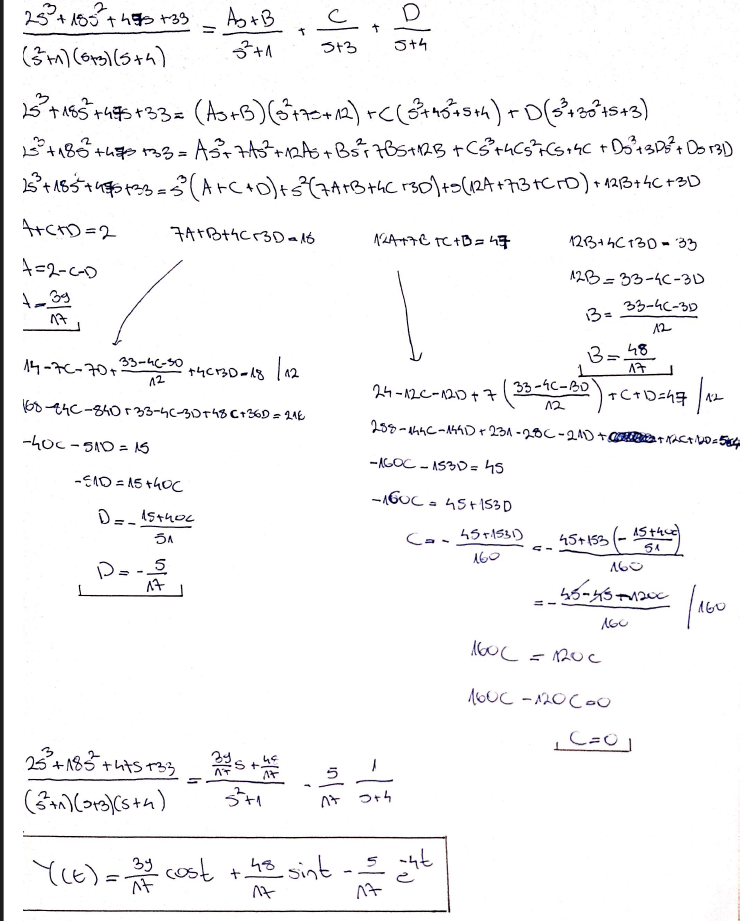 2s³+18s²+47s+33 / (s²+1)(s+3)(s+4) = As+B / s²+1 + C / s+3 + D / s+4
2s³+18s²+47s+33 = (As+B)(s²+7s+12)+C(s³+4s²+s+4)+D(s³+3s²+s+3)
2s³+18s²+47s+33 = As³+7As²+12As+Bs²+7Bs+12B+Cs³+4Cs²+Cs+4C+Ds³+3Ds²+Ds+3D
2s³+18s²+47s+33 = s³(A+C+D)+s²(7A+B+4C+3D)+s(12A+7B+C+D)+12B+4C+3D
A+C+D=2 7A+B+4C+3D=18 12A+7B+C+D=47 12B+4C+3D=33
A=2-C-D
A=39/17
12B=33-4C-3D
B=33-4C-3D / 12
B=48/17
14-7C-7D+33-4C-3D / 12+4C+3D=18 /12
168-84C-84D+33-4C-3D+48C+36D=216
-40C-51D=15
-51D=15+40C
D=-15+40C / 51
D=-5/17
24-12C-12D+7(33-4C-3D / 12)+C+D=47 /12
288-144C-144D+231-28C-21D+12C+12D=564
-160C-153D=45
-160C=45+153D
C=-45+153D / 160=-45+153(-15+40C / 51) / 160
=-45-45-120C / 160 /160
160C=120C
160C-120C=0
C=0
2s³+18s²+47s+33 / (s²+1)(s+3)(s+4) = 39/17 s+48/17 / s²+1 - 5/17 1/s+4
Y(t)=39/17 cost+48/17 sint-5/17 e^-4t